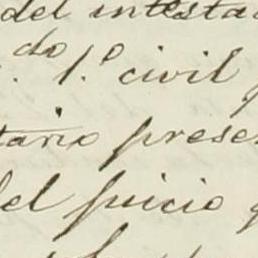 del intesta
do 1.º civil
tario prese
del juicio